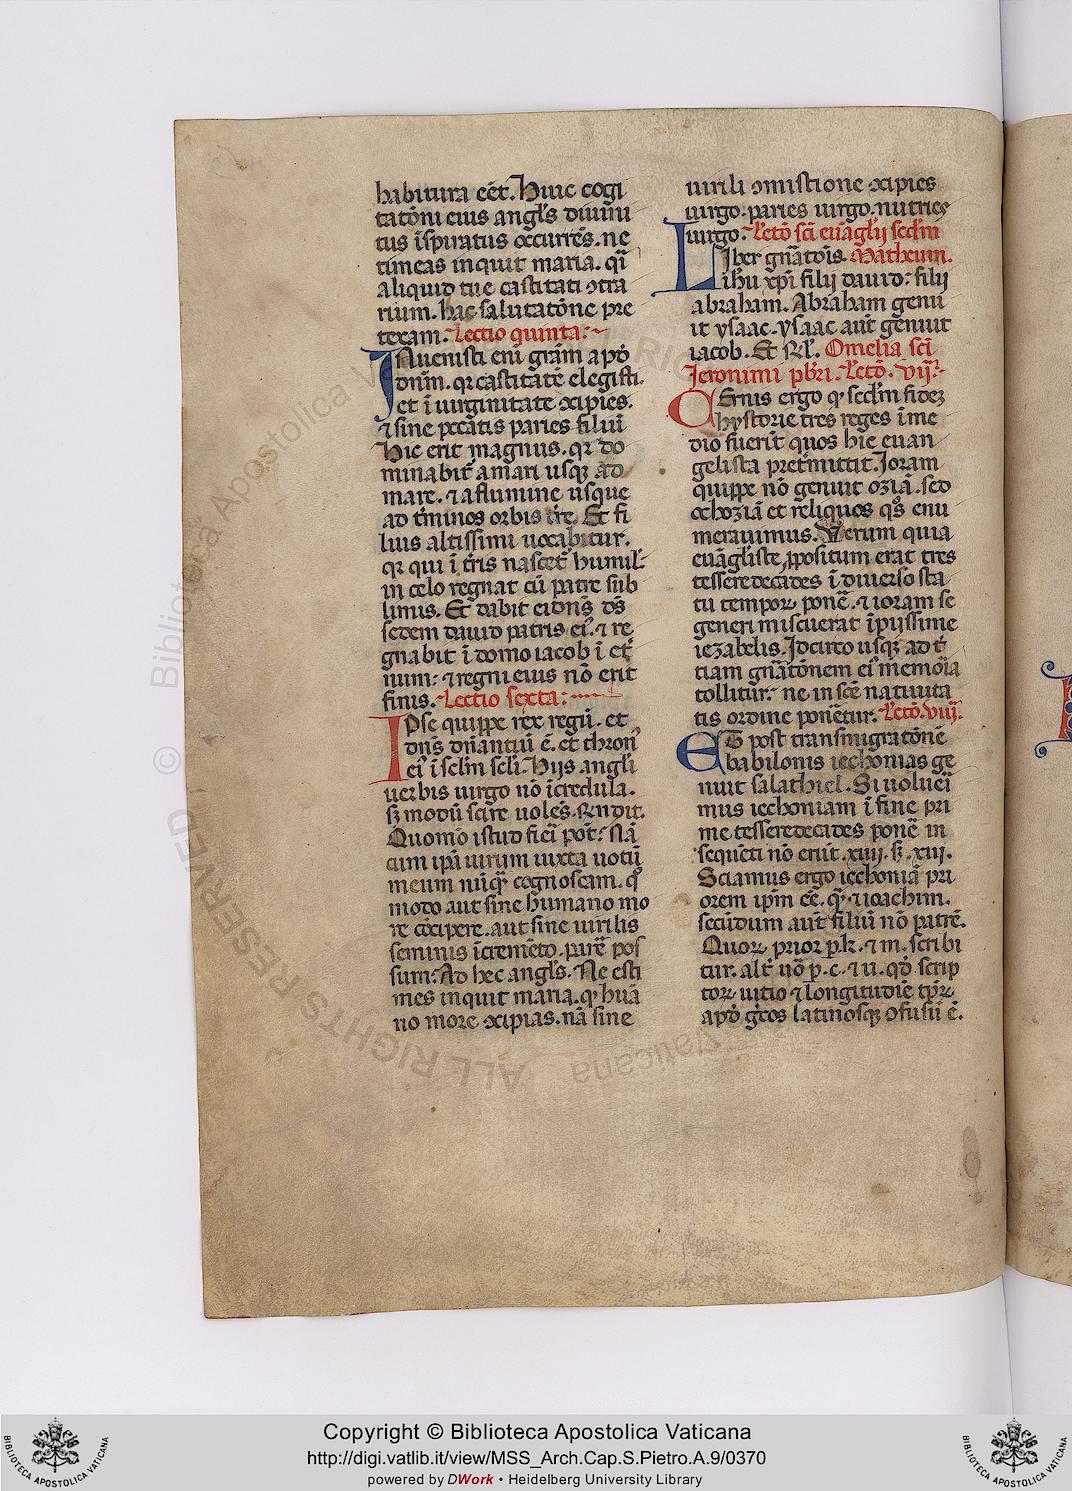 habitura eēt. Huic cogi
tatōni eius angl's diuini
tus īspiratus occurrēs. ne
timeas inquit maria. q̄i
aliquid tue castitati ↄtra
rium. hac salutatōne pre
texam. Lectio quinta:~
INuenisti eni grām apd̄
dnm̄. qr castitatē elegisti.
et ī uirginitate ↄcipies.
⁊ sine pccātis paries filiū
Hic erit magnus. qr do
minabit̄ a mari usq; ad
mare. ⁊ a flumine usque
ad t̄minos orbis t̄re. Et fi
lius altissimi uocabitur.
qr qui ī t̄ris nascet̄ humil'
in celo regnat cū patre sub
limis. Et dabit ei dn̄s d̄s
sedem dauid patris ei'. ⁊ re
gnabit ī domo iacob ī et̄
num: ⁊ regni eius nō erit
finis. Lectio sexta:
IPse quippe rex regū. et
dn̄s dn̄antiū ē. et thron'
ei' ī sclm scli. Hijs angli
uerbis uirgo nō īcredula.
sȝ modū scire uolēs. Rn̄dit.
Quomō istud fiet pōt: Nā
cum ip̄a uirum iuxta uotū
meum nūq̄ cognoscam. q̄
modo aut sine humano mo
re cōcipere. aut sine uirilis
seminis īcremēto. parē pos
sum: Ad hec angl's. Ne esti
mes inquit maria. q̄ huā
no more ↄcipias. nā sine
uirili ↄmistione ↄcipies
uirgo. paries uirgo. nutries
uirgo. Lctō sci euāglij scdm
Liber gnātōis. Matheum.
ihū xp̄i filij dauid: filij
abraham. Abraham genu
it ysaac. ysaac aut̄ genuit
iacob. Et Rl'. Omelia sci
Jeronimi pb̄ri. Lctō. vij.
CErnis ergo q̄ scdm fideȝ
hystorie tres reges ī me
dio fuerīt quos hic euan
gelista pret̄mittit. Joram
quippe nō genuit oziā. sed
ochoziā et reliquos q̄s enu
merauimus. Verum quia
euāgliste ꝓpositum erat tres
tesseredecades ī diuerso sta
tu tempoꝝ ponē. ⁊ ioram se
generi miscuerat īpijssime
iezabelis. Jdcirco usq; ad t̄
tiam gnātōnem ei' memōia
tollitur: ne in scē natiuita
tis ordine ponētur. Lctō. viij.
ET post transmigratōnē
babilonis iechonias ge
nuit salathiel. Si uoluei
mus iechoniam ī fine pri
me tesseredecades ponē in
sequēti nō erūt .xiiij. sȝ .xiij.
Sciamus ergo iechoniā pri
orem ip̄m eē. q̄ ⁊ ioachim.
secūdum aut̄ filiū nō patrē.
Quoꝝ prior p̄. k. ⁊ m. scribi
tur. alt̄ uō p̄. c. ⁊ n. qd̄ scrip
toꝝ uitio ⁊ longitudiē tp̄ꝝ
apd̄ gcōs latinosq; ↄfusū ē.
Copyright © Biblioteca Apostolica Vaticana
http://digi.vatlib.it/view/MSS_Arch.Cap.S.Pietro.A.9/0370
powered by DWork • Heidelberg University Library